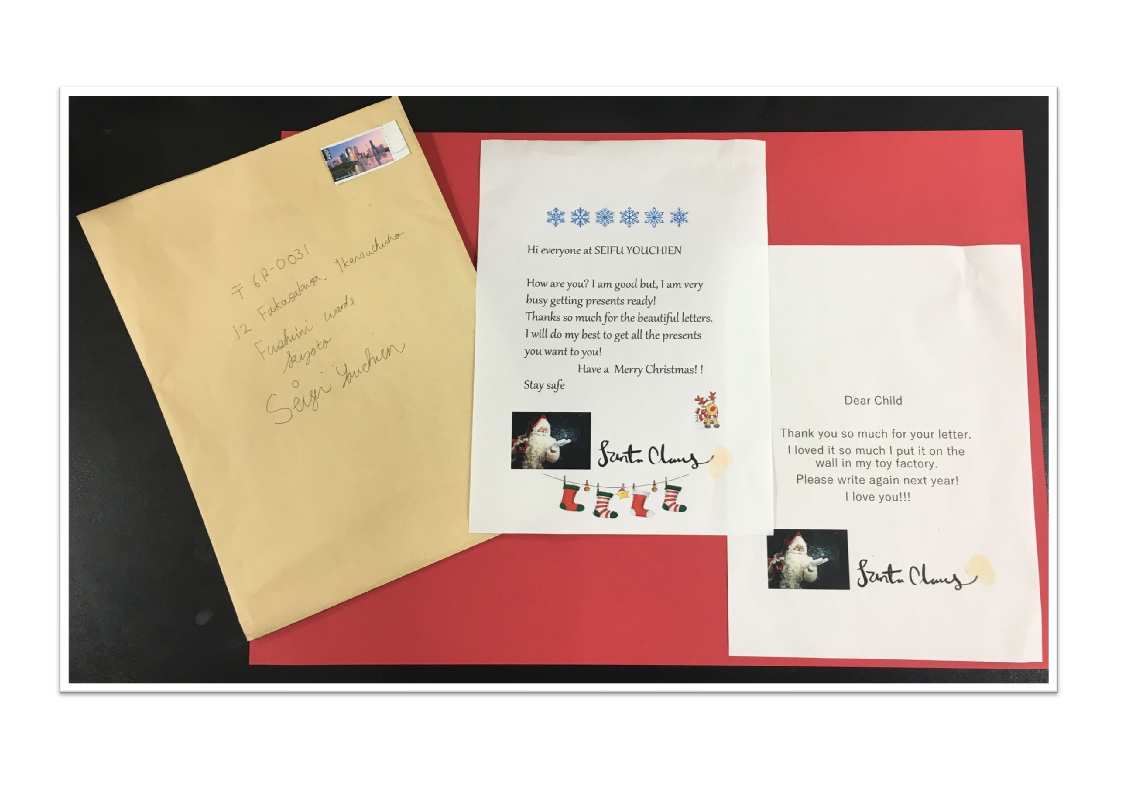 〒 612-0031
12
Fushimi ward
Kyoto
Youchien
Hi everyone at SEIFU YOUCHIEN
How are you? I am good but, I am very
busy getting presents ready!
Thanks so much for the beautiful letters.
I will do my best to get all the presents
you want to you!
Have a Merry Christmas! !
Stay safe
Santa Claus
Dear Child
Thank you so much for your letter.
I loved it so much I put it on the
wall in my toy factory.
Please write again next year!
I love you!!!
Santa Claus